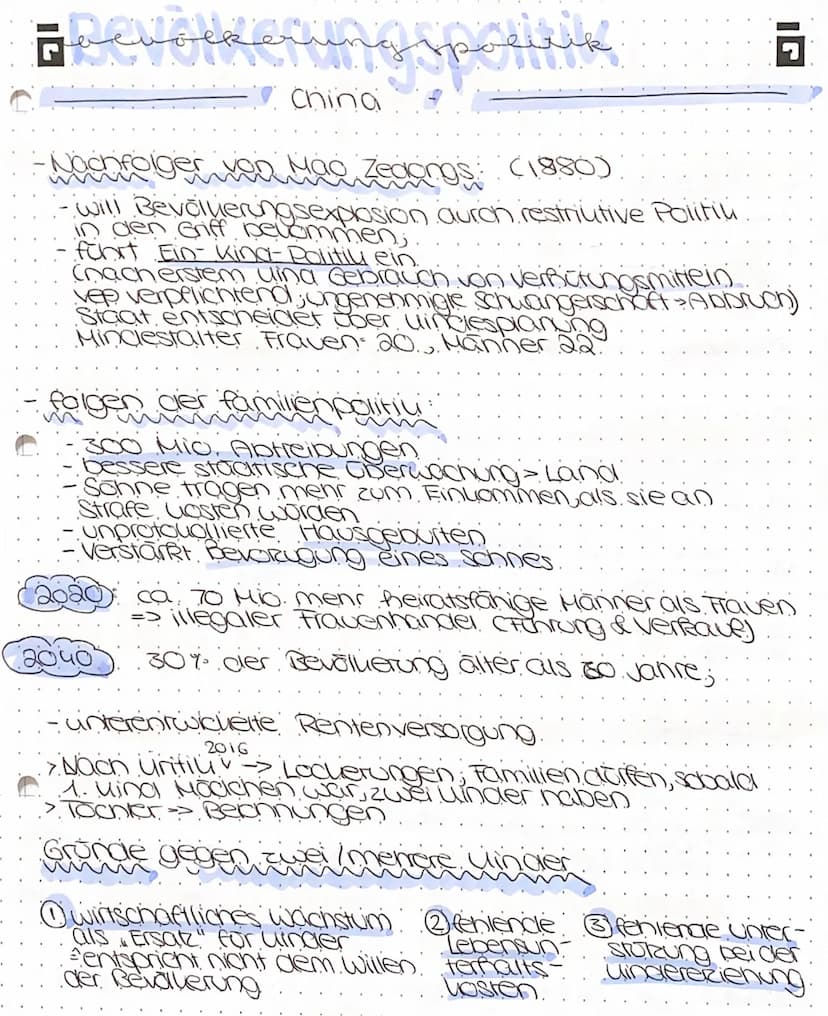 Bevölkerungspolitik
China
- Nachfolger von Mao Zedongs: (1880)
- will Bevölkerungsexplosion durch restriktive Politik
in den Griff bekommen;
- führt Ein-Kind-Politik ein
(nach erstem Kind Gebrauch von Verhütungsmitteln
verpflichtend, ungenehmigte Schwangerschaft → Abbruch)
Staat entscheidet über Kindesplanung
Mindestalter Frauen: 20, Männer 22
- folgen der familienpolitik:
- 300 Mio. Abtreibungen
- bessere staatliche Überwachung > Land
- Söhne tragen mehr zum Einkommen, als sie an
Strafe kosten würden
- unprotokollierte Hausgeburten
- verstärkt Bevorzugung eines Sohnes
2020: ca. 70 Mio. mehr heiratsfähige Männer als Frauen
=> illegaler Frauenhandel & Verkauf)
2040 30% der Bevölkerung älter als 60 Jahre;
- unterentwickelte Rentenversorgung
2016
> Nach Kritik → Lockerungen; Familien dürfen, sobald
1. Kind Mädchen war, zwei Kinder haben
> Töchter => Belohnungen
Gründe gegen zwei/mehrere Kinder
① wirtschaftliches Wachstum
als „Ersatz" für Kinder
entspricht nicht dem Willen
der Bevölkerung
② fehlende
Lebensun-
terhalts-
kosten
③ fehlende Unter-
stützung bei der
Kindererziehung